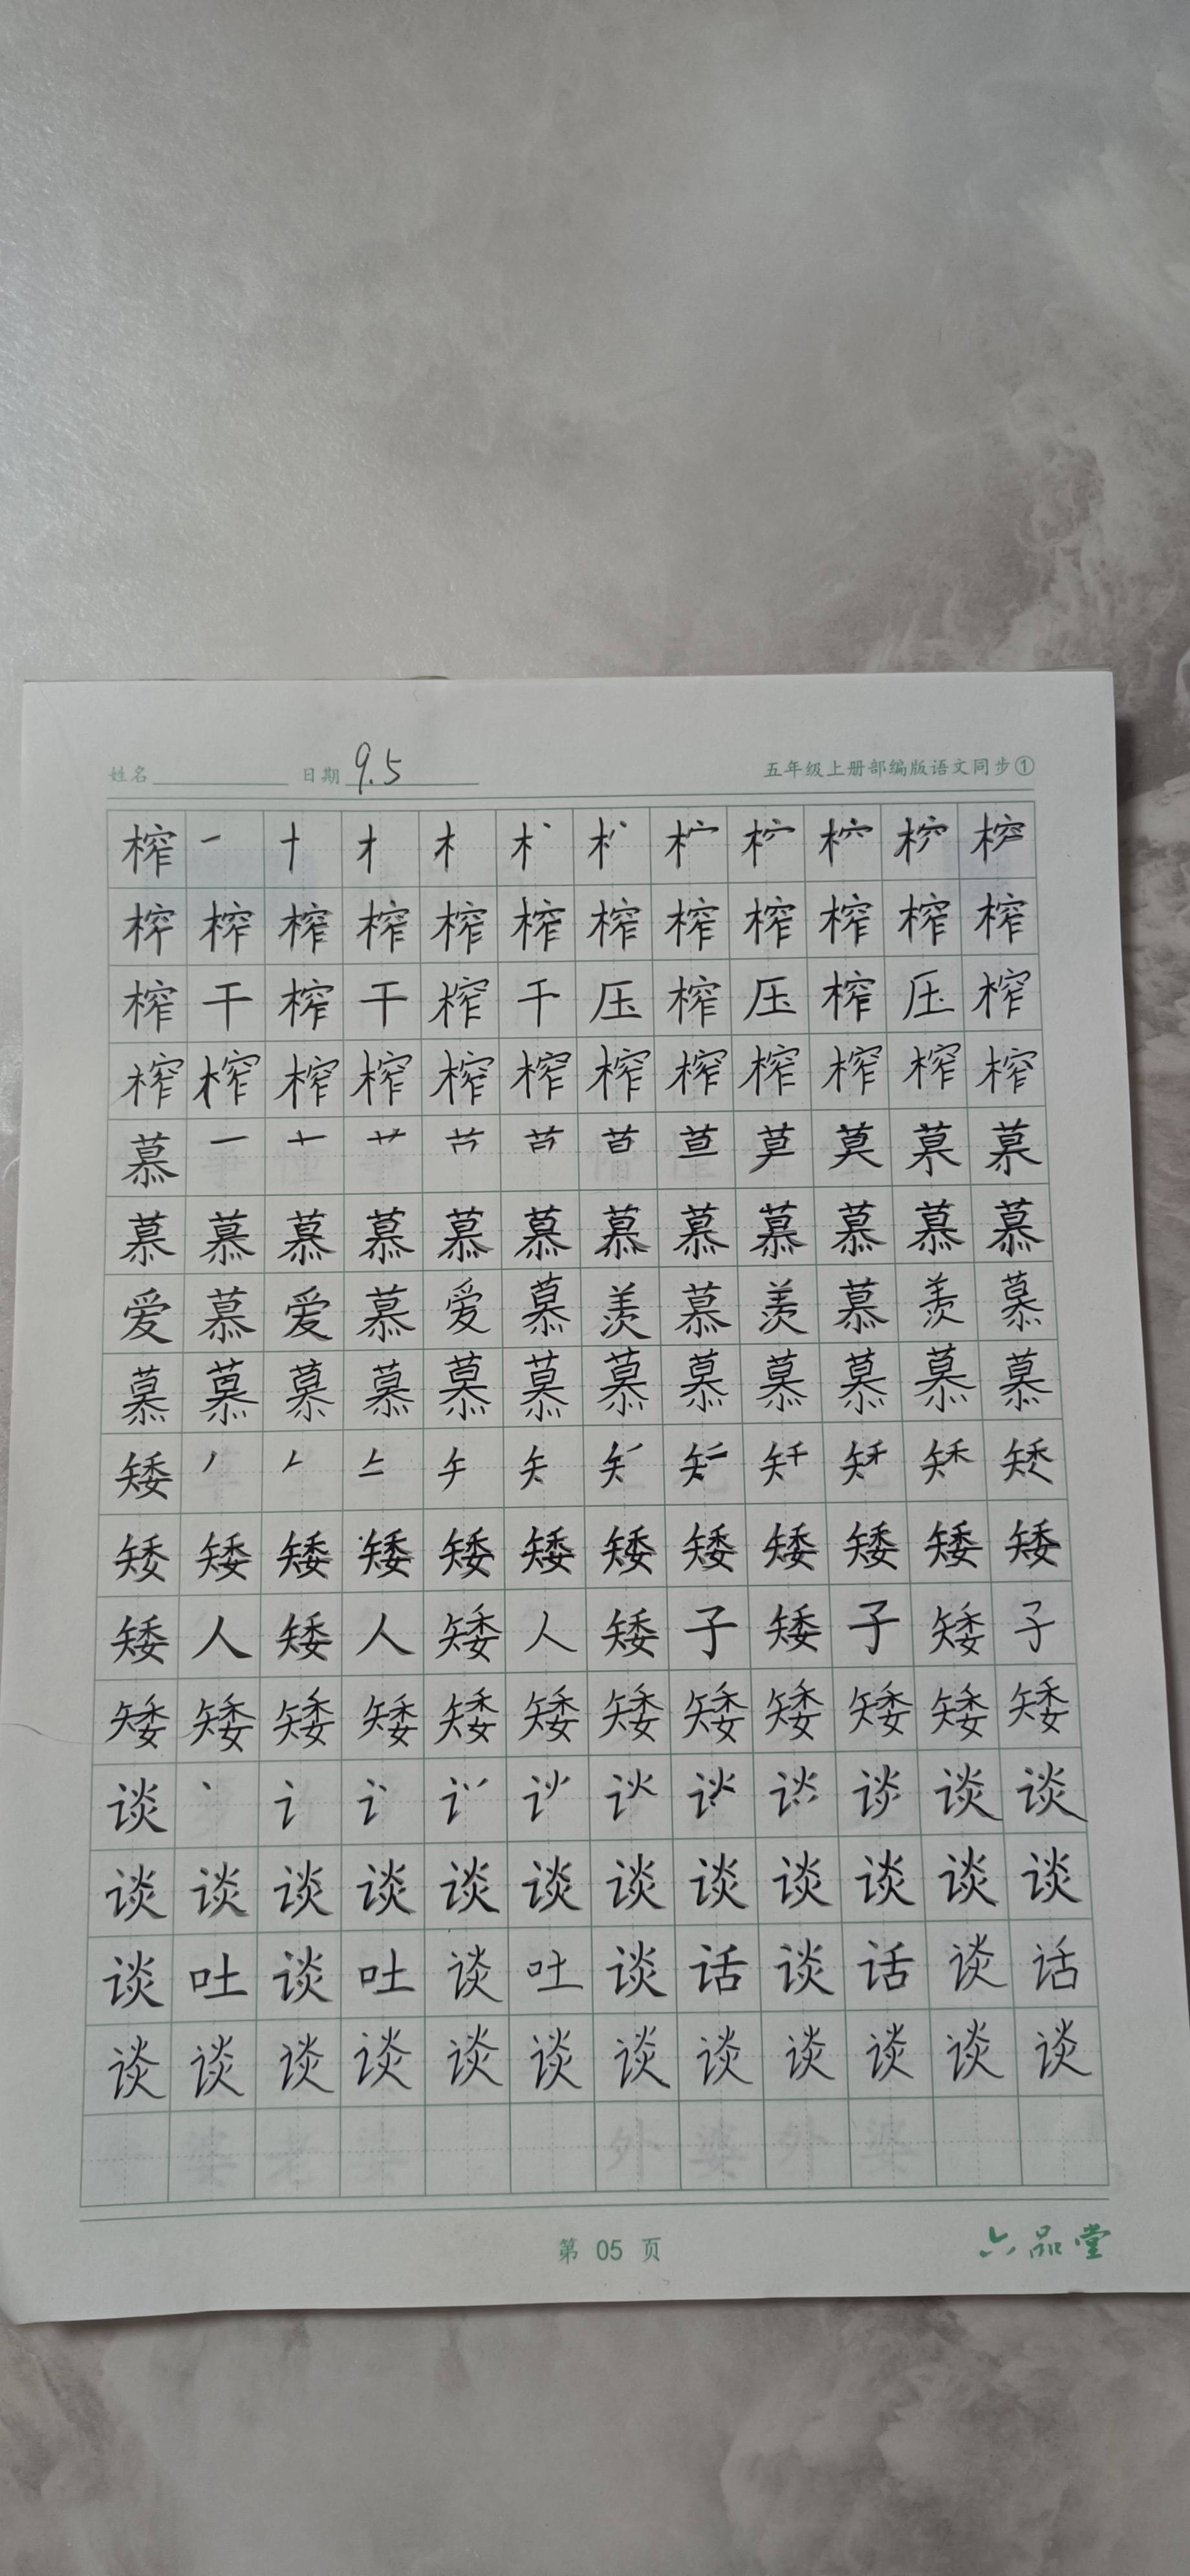 姓名 日期 9.5 五年级上册部编版语文同步①
榨 一 十 才 木
榨 榨 榨 榨 榨 榨 榨 榨 榨 榨 榨
榨 干 榨 干 榨 干 压 榨 压 榨 压 榨
榨 榨 榨 榨 榨 榨 榨 榨 榨 榨 榨 榨
慕 一 十 艹 苩 莫
慕 慕 慕 慕 慕 慕 慕 慕 慕 慕 慕 慕
爱 慕 爱 慕 爱 慕 羡 慕 羡 慕 羡 慕
慕 慕 慕 慕 慕 慕 慕 慕 慕 慕 慕 慕
矮 丿 𠂉 矢
矮 矮 矮 矮 矮 矮 矮 矮 矮 矮 矮
矮 人 矮 人 矮 人 矮 子 矮 子 矮 子
矮 矮 矮 矮 矮 矮 矮 矮 矮 矮 矮 矮
谈 丶 讠 谈 谈
谈 谈 谈 谈 谈 谈 谈 谈 谈 谈 谈 谈
谈 吐 谈 吐 谈 吐 谈 话 谈 话 谈 话
谈 谈 谈 谈 谈 谈 谈 谈 谈 谈 谈 谈
第 05 页 六品堂